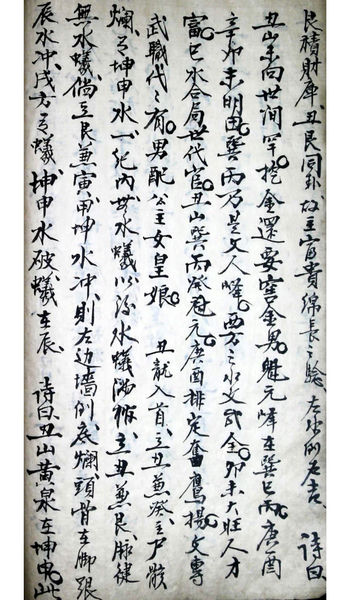 艮積財庫丑艮同卦故主富貴綿長之驗左水的右吉 詩曰
丑山未向世间罕挖金還要窖金男魁元峰在巽巳丙庚酉
辛卯未明田巽丙乃是文人峰酉方之水文武全卯未大旺人才
富巳水合局世代官丑山巽丙癸魁元庚酉排定奮鷹揚文專
武職代之有男配公主女皇娘 丑龍入首立丑兼癸主尸骸
爛了坤申水一纪内無水蟻以涉水蟻滿棺立丑兼艮脉健
無水蟻倘立艮兼寅甲坤水冲則左边墙倒底爛頭骨在脚跟
辰水冲戌方了蟻坤申水破蟻在辰 詩曰丑山黄泉在坤申此